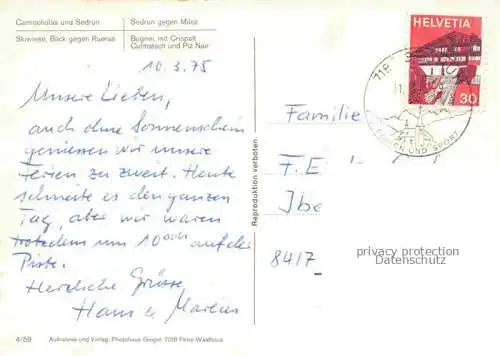 Camischolas und Sedrun
Skiwiese, Blick gegen Rueras
Sedrun gegen Milez
Bugnei, mit Crispalt
Culmatsch und Piz Nair
HELVETIA
30
FERIEN UND SPORT
10.3.75
Unsere Lieben,
auch ohne Sonnenschein
geniessen wir unsere
Ferien zu zweit. Heute
schneite es den ganzen
Tag, aber wir waren
trotzdem um 10 auf der
Piste.
Herzliche Grüsse,
Hans &
Familie
F. E
Ibe
8417
Reproduktion verboten
privacy protection
Datenschutz
4/59 Aufnahme und Verlag: Photohaus Geiger, 7018 Flims-Waldhaus